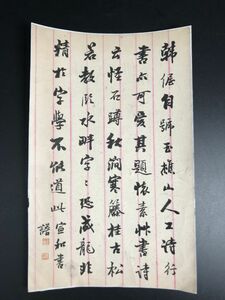 韓偓自號玉樵山人工詩行
書亦可愛其題懷素艸書詩
云怪石蹲秋澗寒藤挂古松
若教臨水畔字〻恐成龍非
精於字學不能道此宣和書
譜